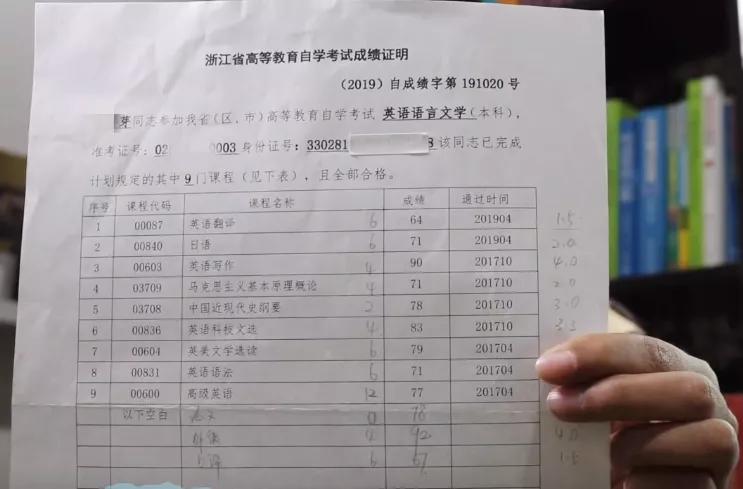 浙江省高等教育自学考试成绩证明
(2019)自成绩字第 191020 号
芽同志参加我省(区、市)高等教育自学考试 英语语言文学(本科),
准考证号:02 0003 身份证号:330281 8 该同志已完成
计划规定的其中 9 门课程(见下表),且全部合格。
序号 课程代码 课程名称 成绩 通过时间
1 00087 英语翻译 6 64 201904 1.5
2 00840 日语 6 71 201904 2.0
3 00603 英语写作 4 90 201710 4.0
4 03709 马克思主义基本原理概论 4 71 201710 2.0
5 03708 中国近现代史纲要 2 78 201710 3.0
6 00836 英语科技文选 4 83 201710 3.5
7 00604 英美文学选读 6 79 201704
8 00831 英语语法 6 71 201704
9 00600 高级英语 12 77 201704
以下空白 论文 0 78
4 92 4.0
口译 6 67 1.5